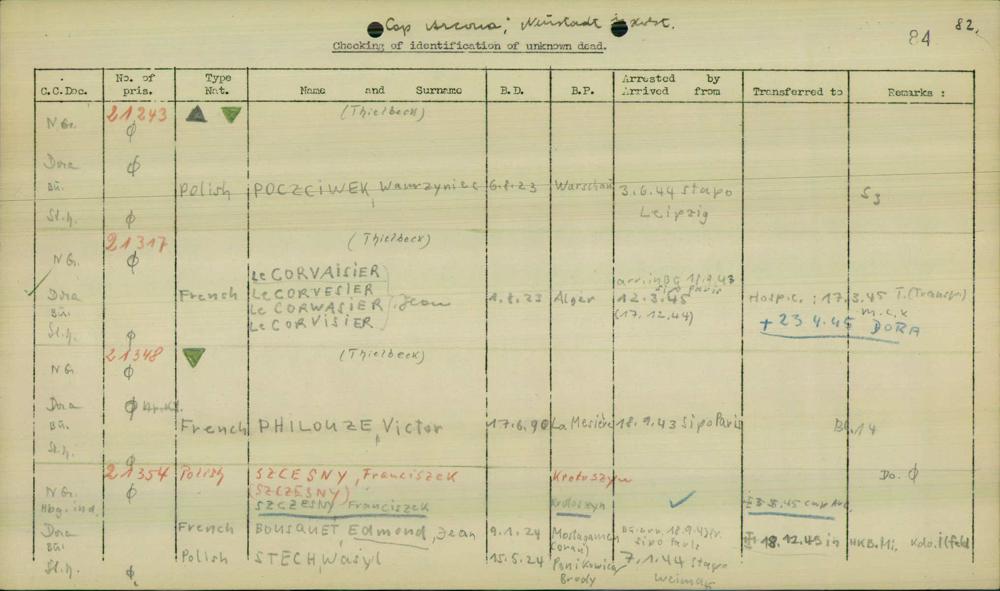 Cap Arcona; Neustadt i. Holst.
84 82.
Checking of identification of unknown dead.
C.C.Doc. No. of pris. Type Nat. Name and Surname B.D. B.P. Arrested by Arrived from Transferred to Remarks :
21243 (Thielbeck)
N Gr. ϕ
Dora ϕ
Bu. Polish POCZCIWEK, Wawrzyniec 6.8.23 Warschau 3.6.44 Stapo S3
St.h. ϕ Leipzig
21317 (Thielbeck)
N Gr. ϕ
Le CORVAISIER
Dora French Le CORVESIER 1.8.23 Algér 12.3.45 Hospic. : 17.3.45 T. (Transp.)
Bu. Le CORWASIER Jean (17.12.44)
St.h. ϕ Le CORVISIER + 23 4.45 DORA
21348 (Thielbeck)
N Gr. ϕ
Dora ϕ
Bu. French PHILOUZE, Victor 17.6.90 La Mesière 18.9.43 Sipo Paris Bl. 14
St.h. ϕ
21354 Polish SZCESNY, Franciszek Krotoszyn Do. ϕ
N Gr. ϕ (SZCZESNY)
Hbg. ind. SZCZESNY Franciszek Krotoszyn
Dora French BOUSQUET, Edmond, Jean 9.1.24 18.9.43 Sipo Paris 18.12.45 in HKB. Mi.
Bu. Polish STECH, Wasyl 15.5.24 Ponikowica 7.1.44 Stapo
St.h. ϕ Brody Weimar